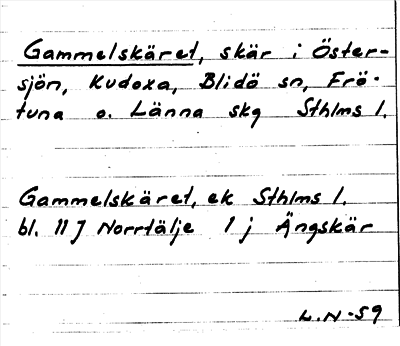 Gammelskäret, skär i Öster-
sjön, Kudoxa, Blidö sn, Frö-
tuna o. Länna skg Sthlms l.
Gammelskäret, ek Sthlms l.
bl. 11J Norrtälje 1 j Ängskär
L.N-59